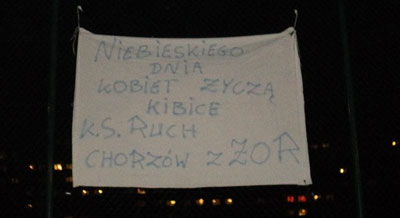 NIEBIESKIEGO
DNIA
KOBIET ZYCZĄ
KIBICE
K.S. RUCH
CHORZÓW Z ŻOR